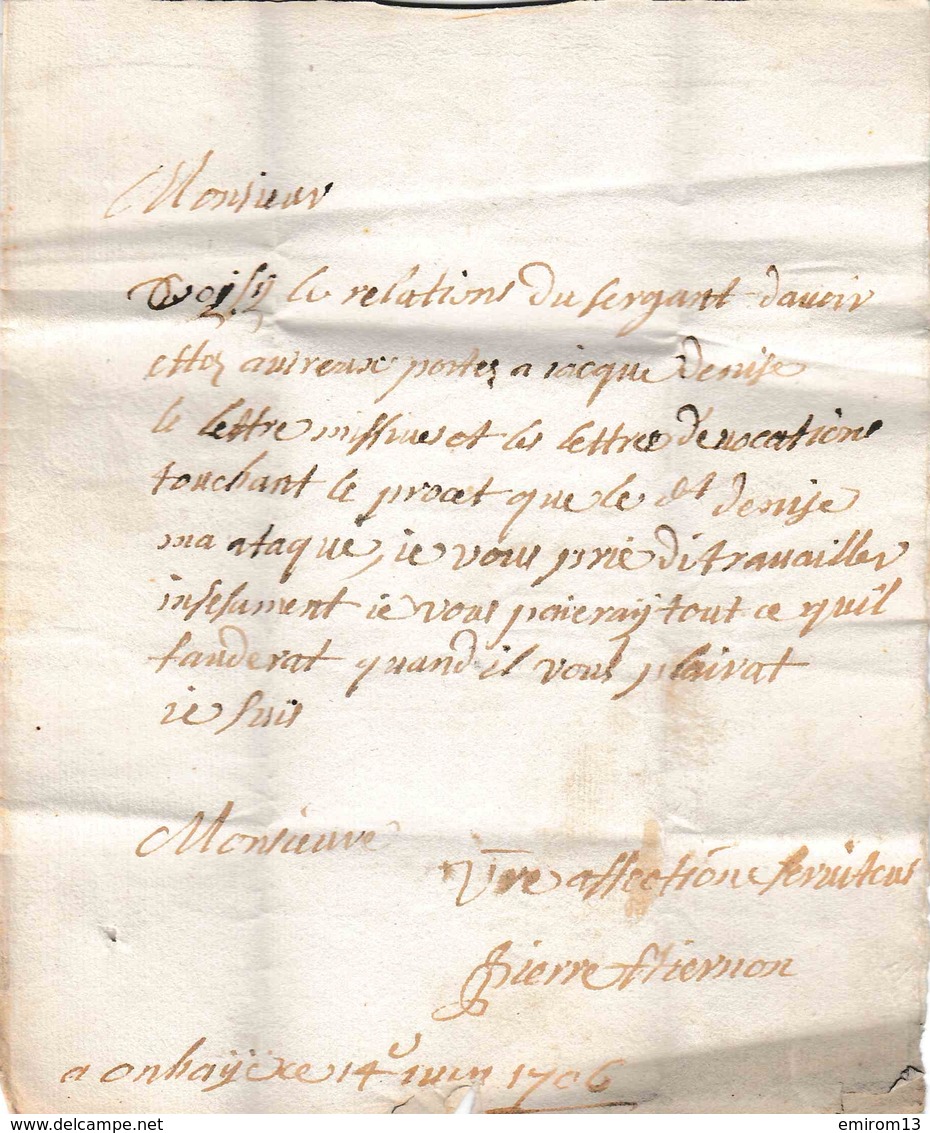 Monsieur
Voisy le relations du sergant davoir
ettez auvreux portez a iacque denise
le lettre missives et les lettre devocations
touchant le procet que le dt denise
ma ataqué, ie vous prie di travailler
insesament ie vous paieray tout ce quil
fauderat quand il vous plairat
ie suis
Monsieure
Vre affectione serviteur
Pierre
a onhaÿe ce 14e iuin 1706
www.delcampe.net
emirom13